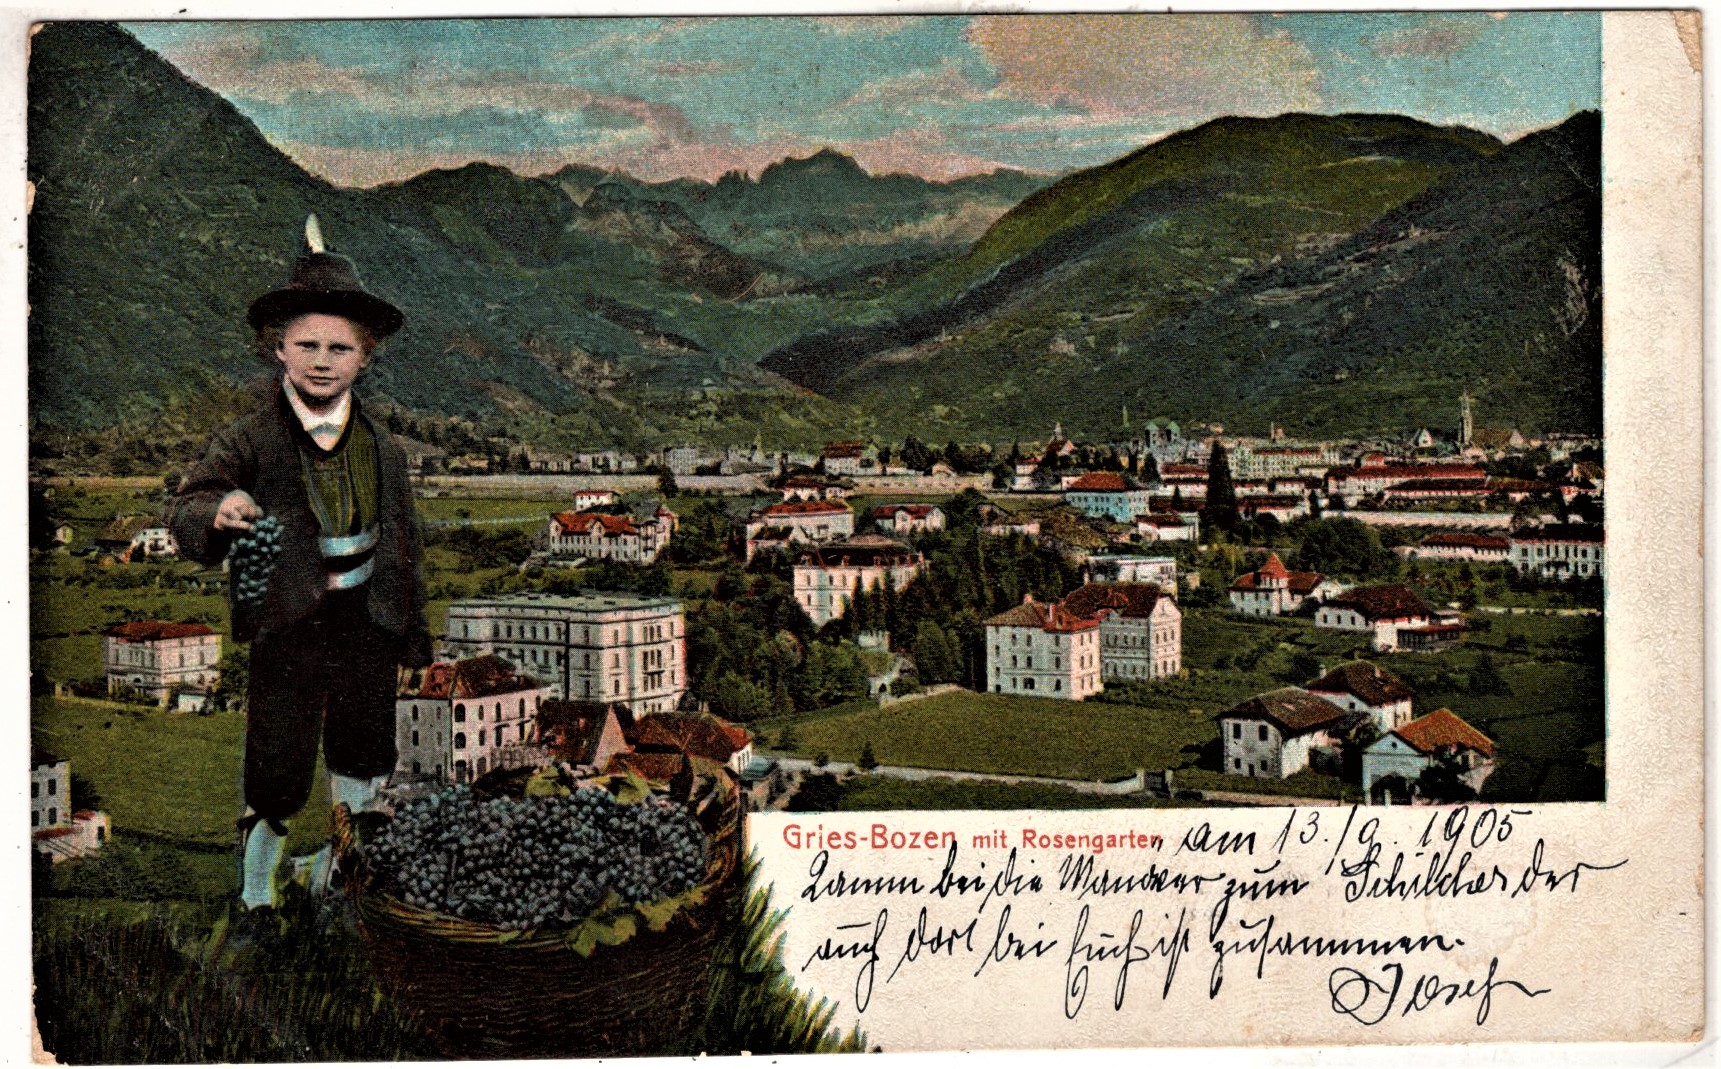 Gries-Bozen mit Rosengarten, am 13./9. 1905
Kamm bei die Manöver zum Schilcher der
auch dort bei Euch ist zusammen.
Josef